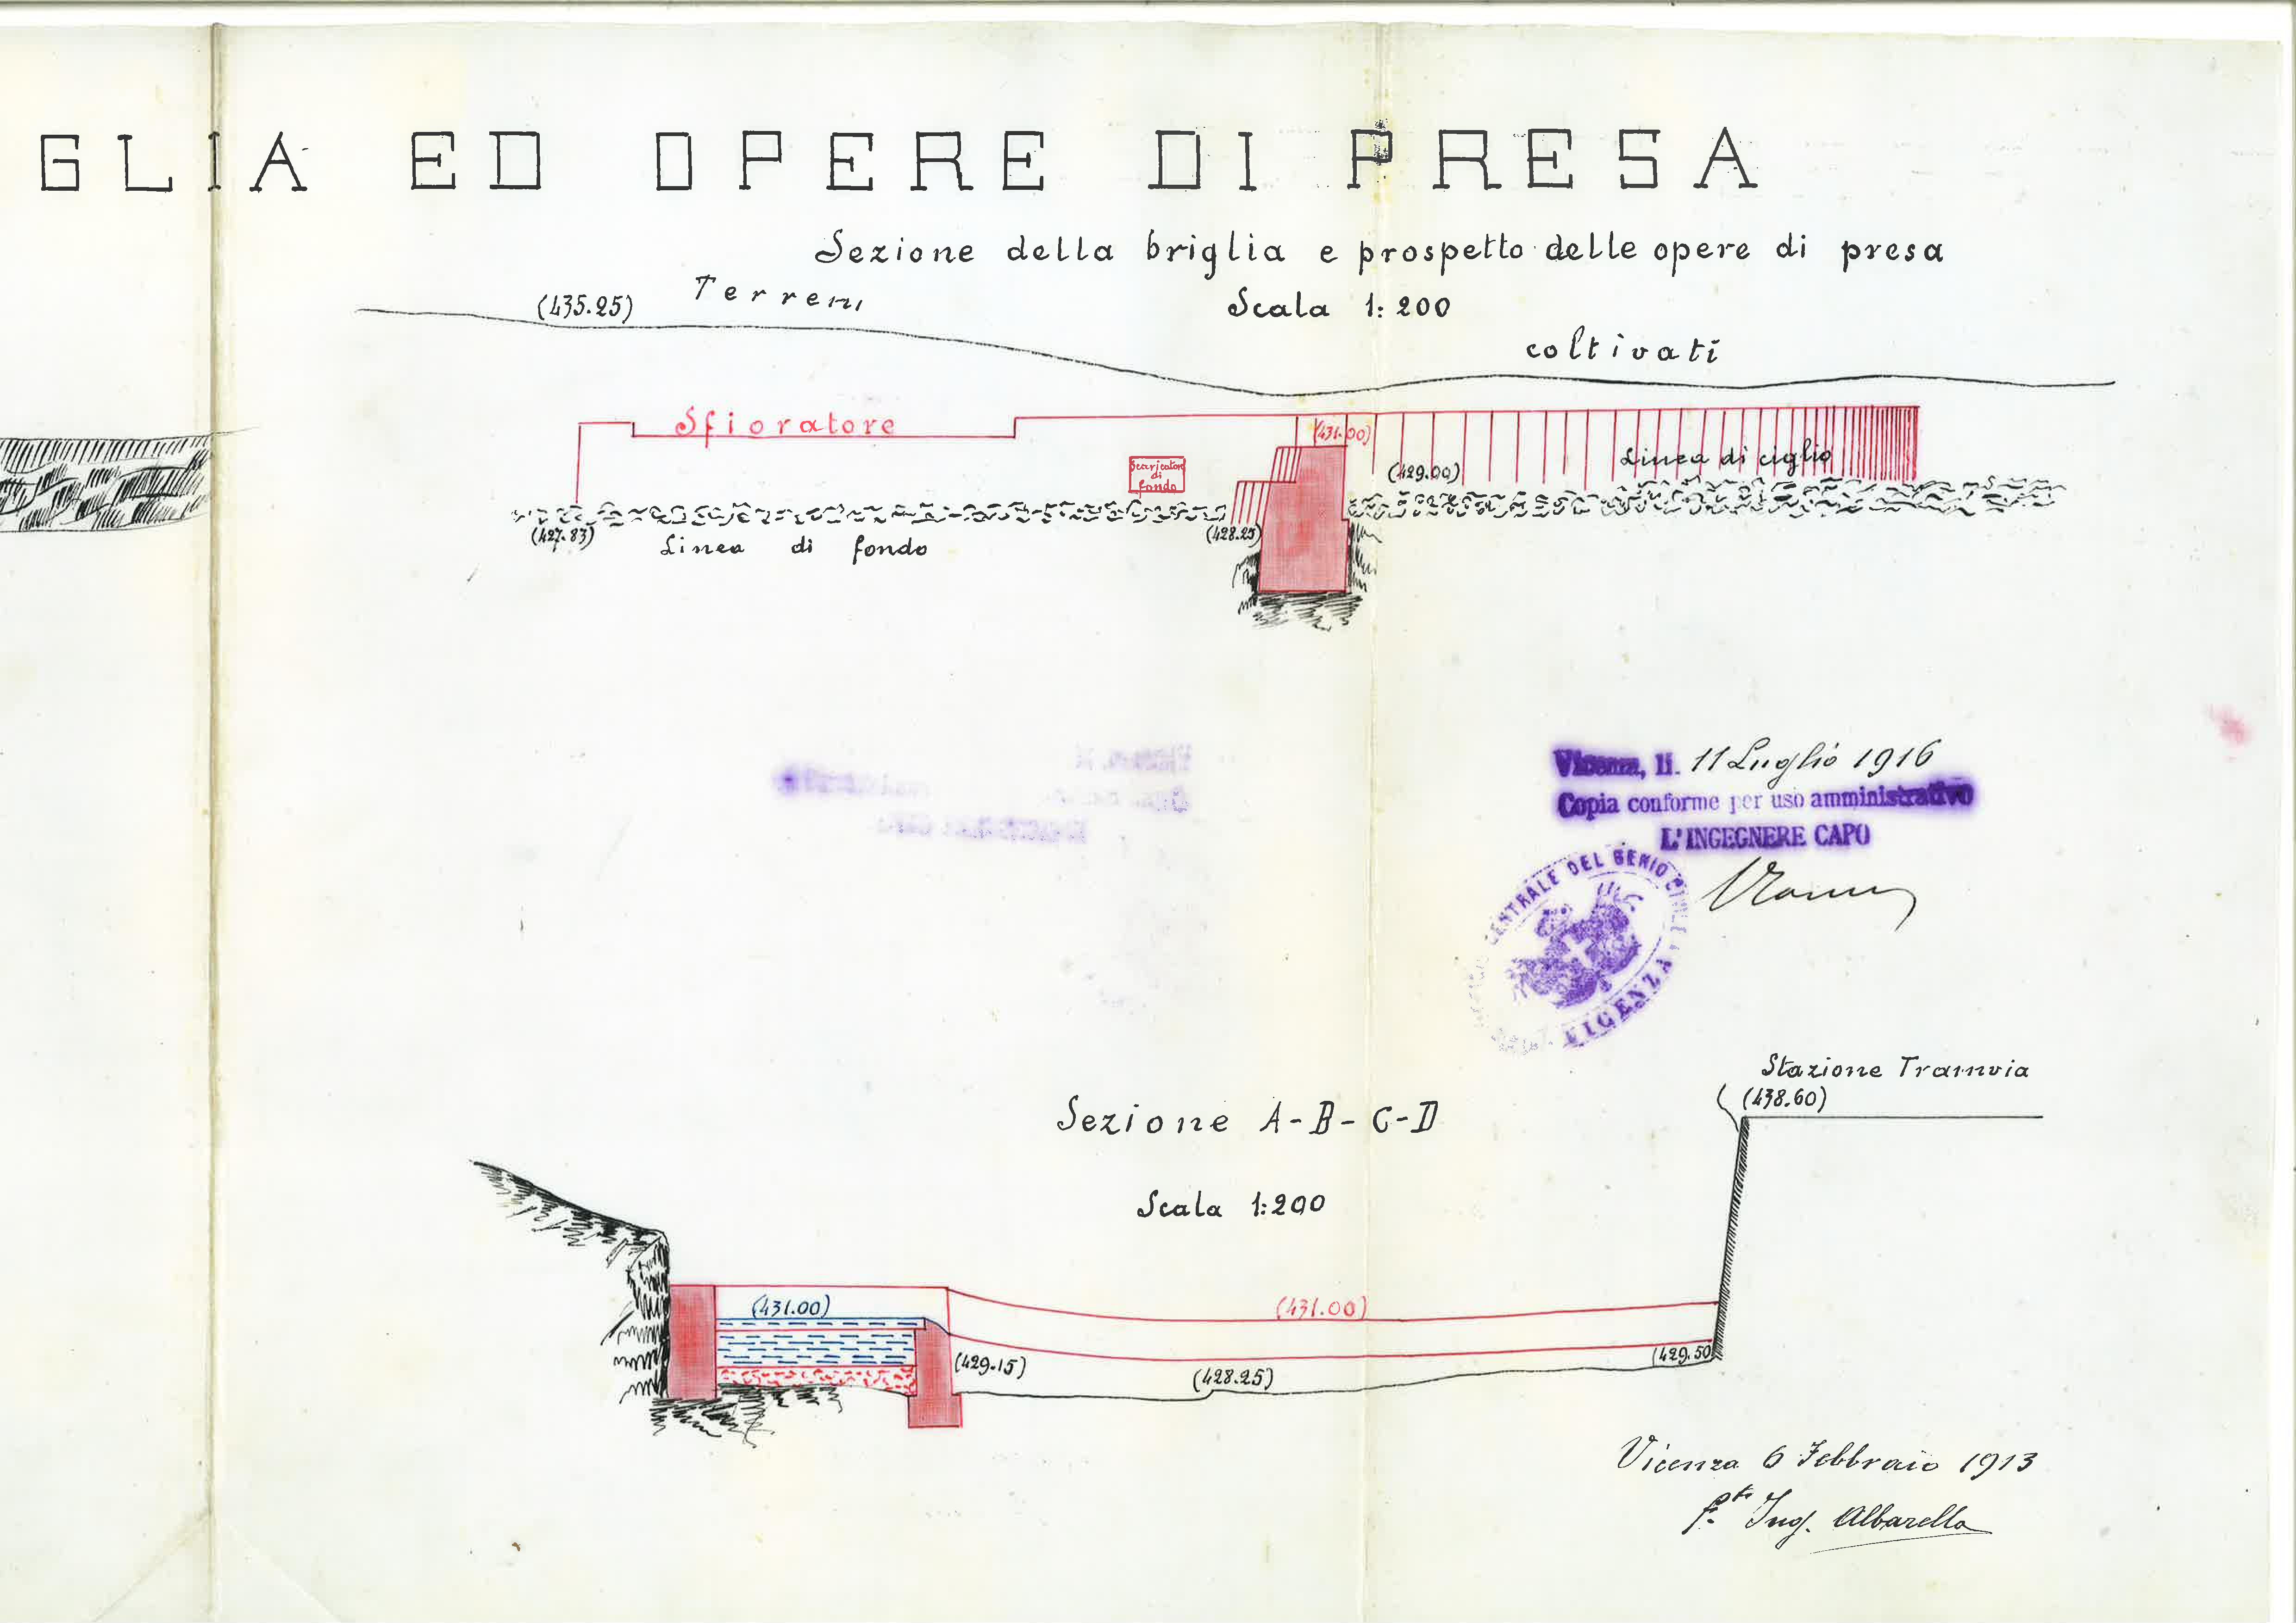 GLIA ED OPERE DI PRESA
Sezione della briglia e prospetto delle opere di presa
Scala 1:200
(435.25) Terreni
coltivati
Sfioratore
(431.00)
Scaricatore
di
fondo
(429.00)
Linea di ciglio
(427.83)
(428.25)
Linea di fondo
Vicenza, li. 11 Luglio 1916
Copia conforme per uso amministrativo
L'INGEGNERE CAPO
CENTRALE DEL GENIO CIVILE
VICENZA
Stazione Tramvia
(438.60)
Sezione A-B-C-D
Scala 1:200
(431.00)
(431.00)
(429.15)
(428.25)
(429.50
Vicenza 6 Febbraio 1913
f.to Ing. Albarello